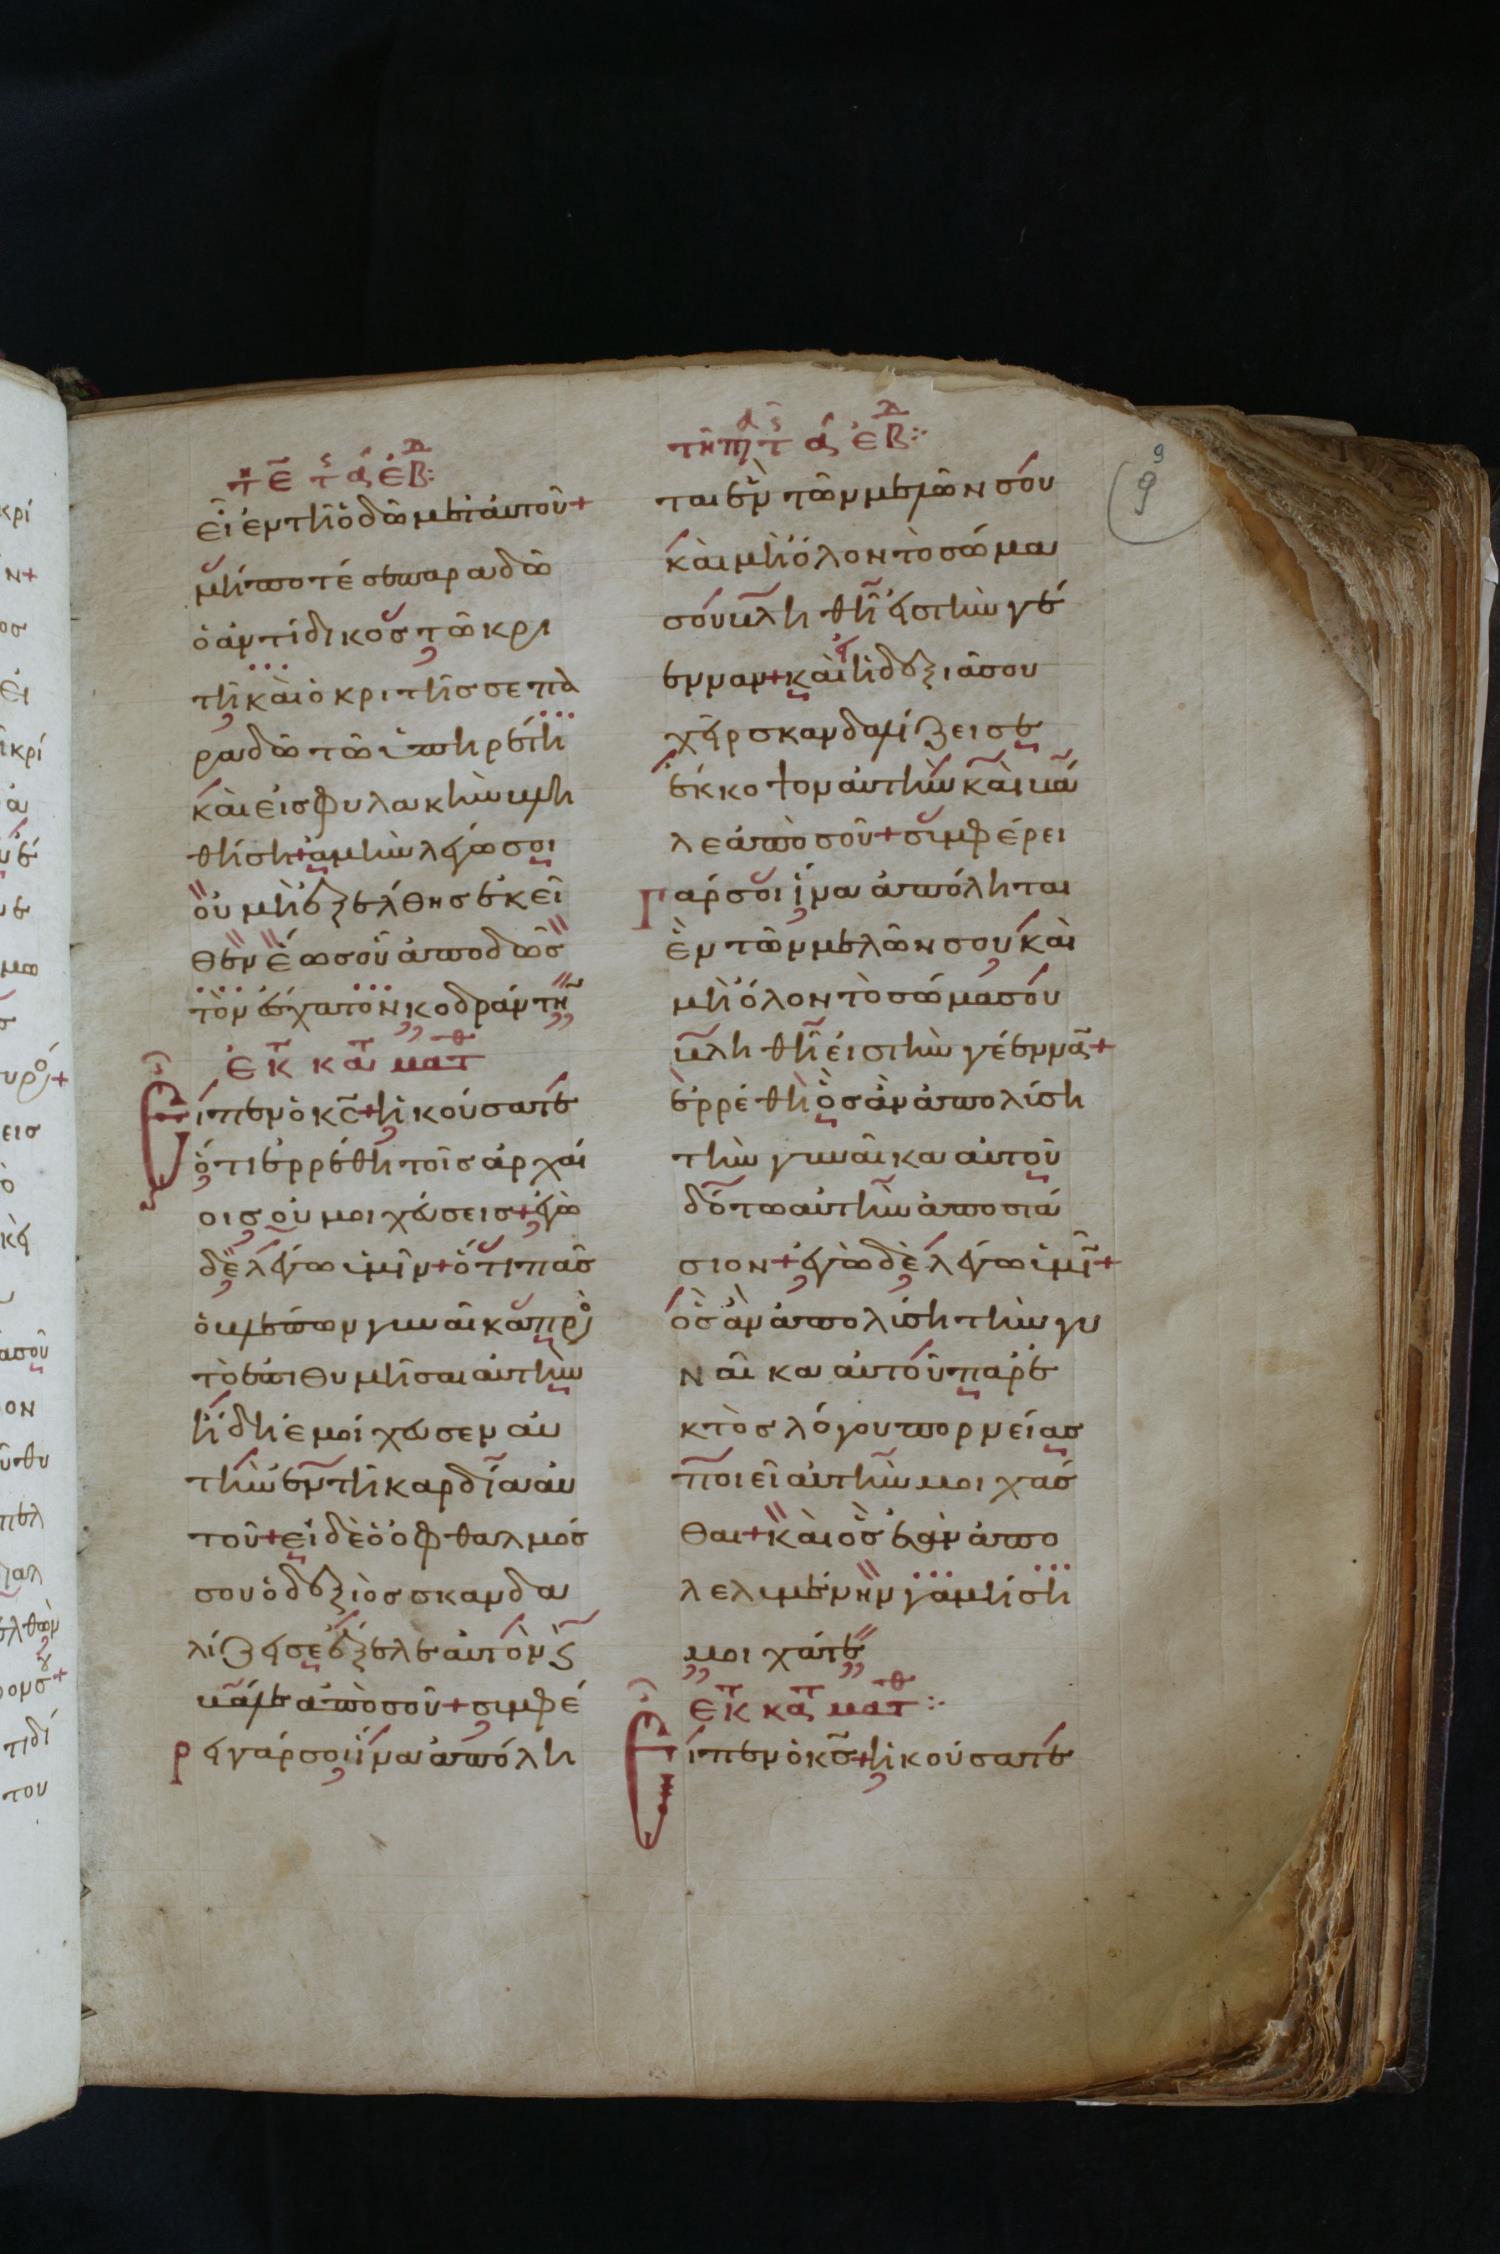 τῇ ε̄ τῆς ά ἑβδ:
εἶ ἐν τῆ ὁδῶ μετ αυτοῦ+
μήποτέ σε παραδῶ
ὁ ἀντίδικος τῶ κρι
τῆ καὶ ὁ κριτῆς σε πα
ραδῶ τῶ ὑπηρέτη
καὶ εἰς φυλακὴν βλη
θήση+ ἀμὴν λέγω σοι
οὐ μὴ ἐξέλθης ἐκεῖ
θεν ἕως οὗ ἀποδῶς
τὸν ἔσχατον κοδράντη
ἐκ τ κατ ματθ
Εἶπεν ὁ κς+ ἠκούσατε
ὅτι ἐρρέθη τοῖς ἀρχαί
οις οὐ μοιχεύσεις+ ἐγὼ
δὲ λέγω ὑμῖν+ ὅτι πᾶς
ὁ βλέπων γυναῖκα πρὸς
τὸ ἐπιθυμῆσαι αὐτὴν
ἤδη ἐμοίχευσεν αὐ
τὴν ἐν τῆ καρδία αὐ
τοῦ+ εἰ δὲ ὁ ὀφθαλμός
σου ὁ δεξιὸς σκανδα
λίζει σε ἔξελε αὐτὸν ϗ
βάλε ἀπὸ σοῦ+ συμφέ
ρει γάρ σοι ἵνα ἀπόλη
τῇ παρ τῆς ά ἑβδ:
ται ἓν τῶν μελῶν σου
καὶ μὴ ὅλον τὸ σῶμα
σου βληθῆ εἰς τὴν γέ
ενναν+ καὶ εἰ ἡ δεξιά σου
χεὶρ σκανδαλίζει σε
ἔκκοψον αὐτὴν καὶ βά
λε ἀπὸ σοῦ+ συμφέρει
Γάρ σοι ἵνα ἀπόληται
ἓν τῶν μελῶν σου καὶ
μὴ ὅλον τὸ σῶμα σου
βληθῆ εἰς τὴν γέενναν+
ἐρρέθη ὃς ἂν ἀπολύση
τὴν γυναῖκα αὐτοῦ
δότω αὐτὴν ἀποστά
σιον+ ἐγὼ δὲ λέγω ὑμῖν+
ὃς ἂν ἀπολύση τὴν γυ
ναῖκα αὐτοῦ παρε
κτὸς λόγου πορνείας
ποιεῖ αὐτὴν μοιχᾶσ
θαι+ καὶ ὃς ἐὰν ἀπο
λελυμένην γαμήση
μοιχᾶται
ἐκ τ κατ ματθ:
Εἶπεν ὁ κς+ ἠκούσατε
9
9